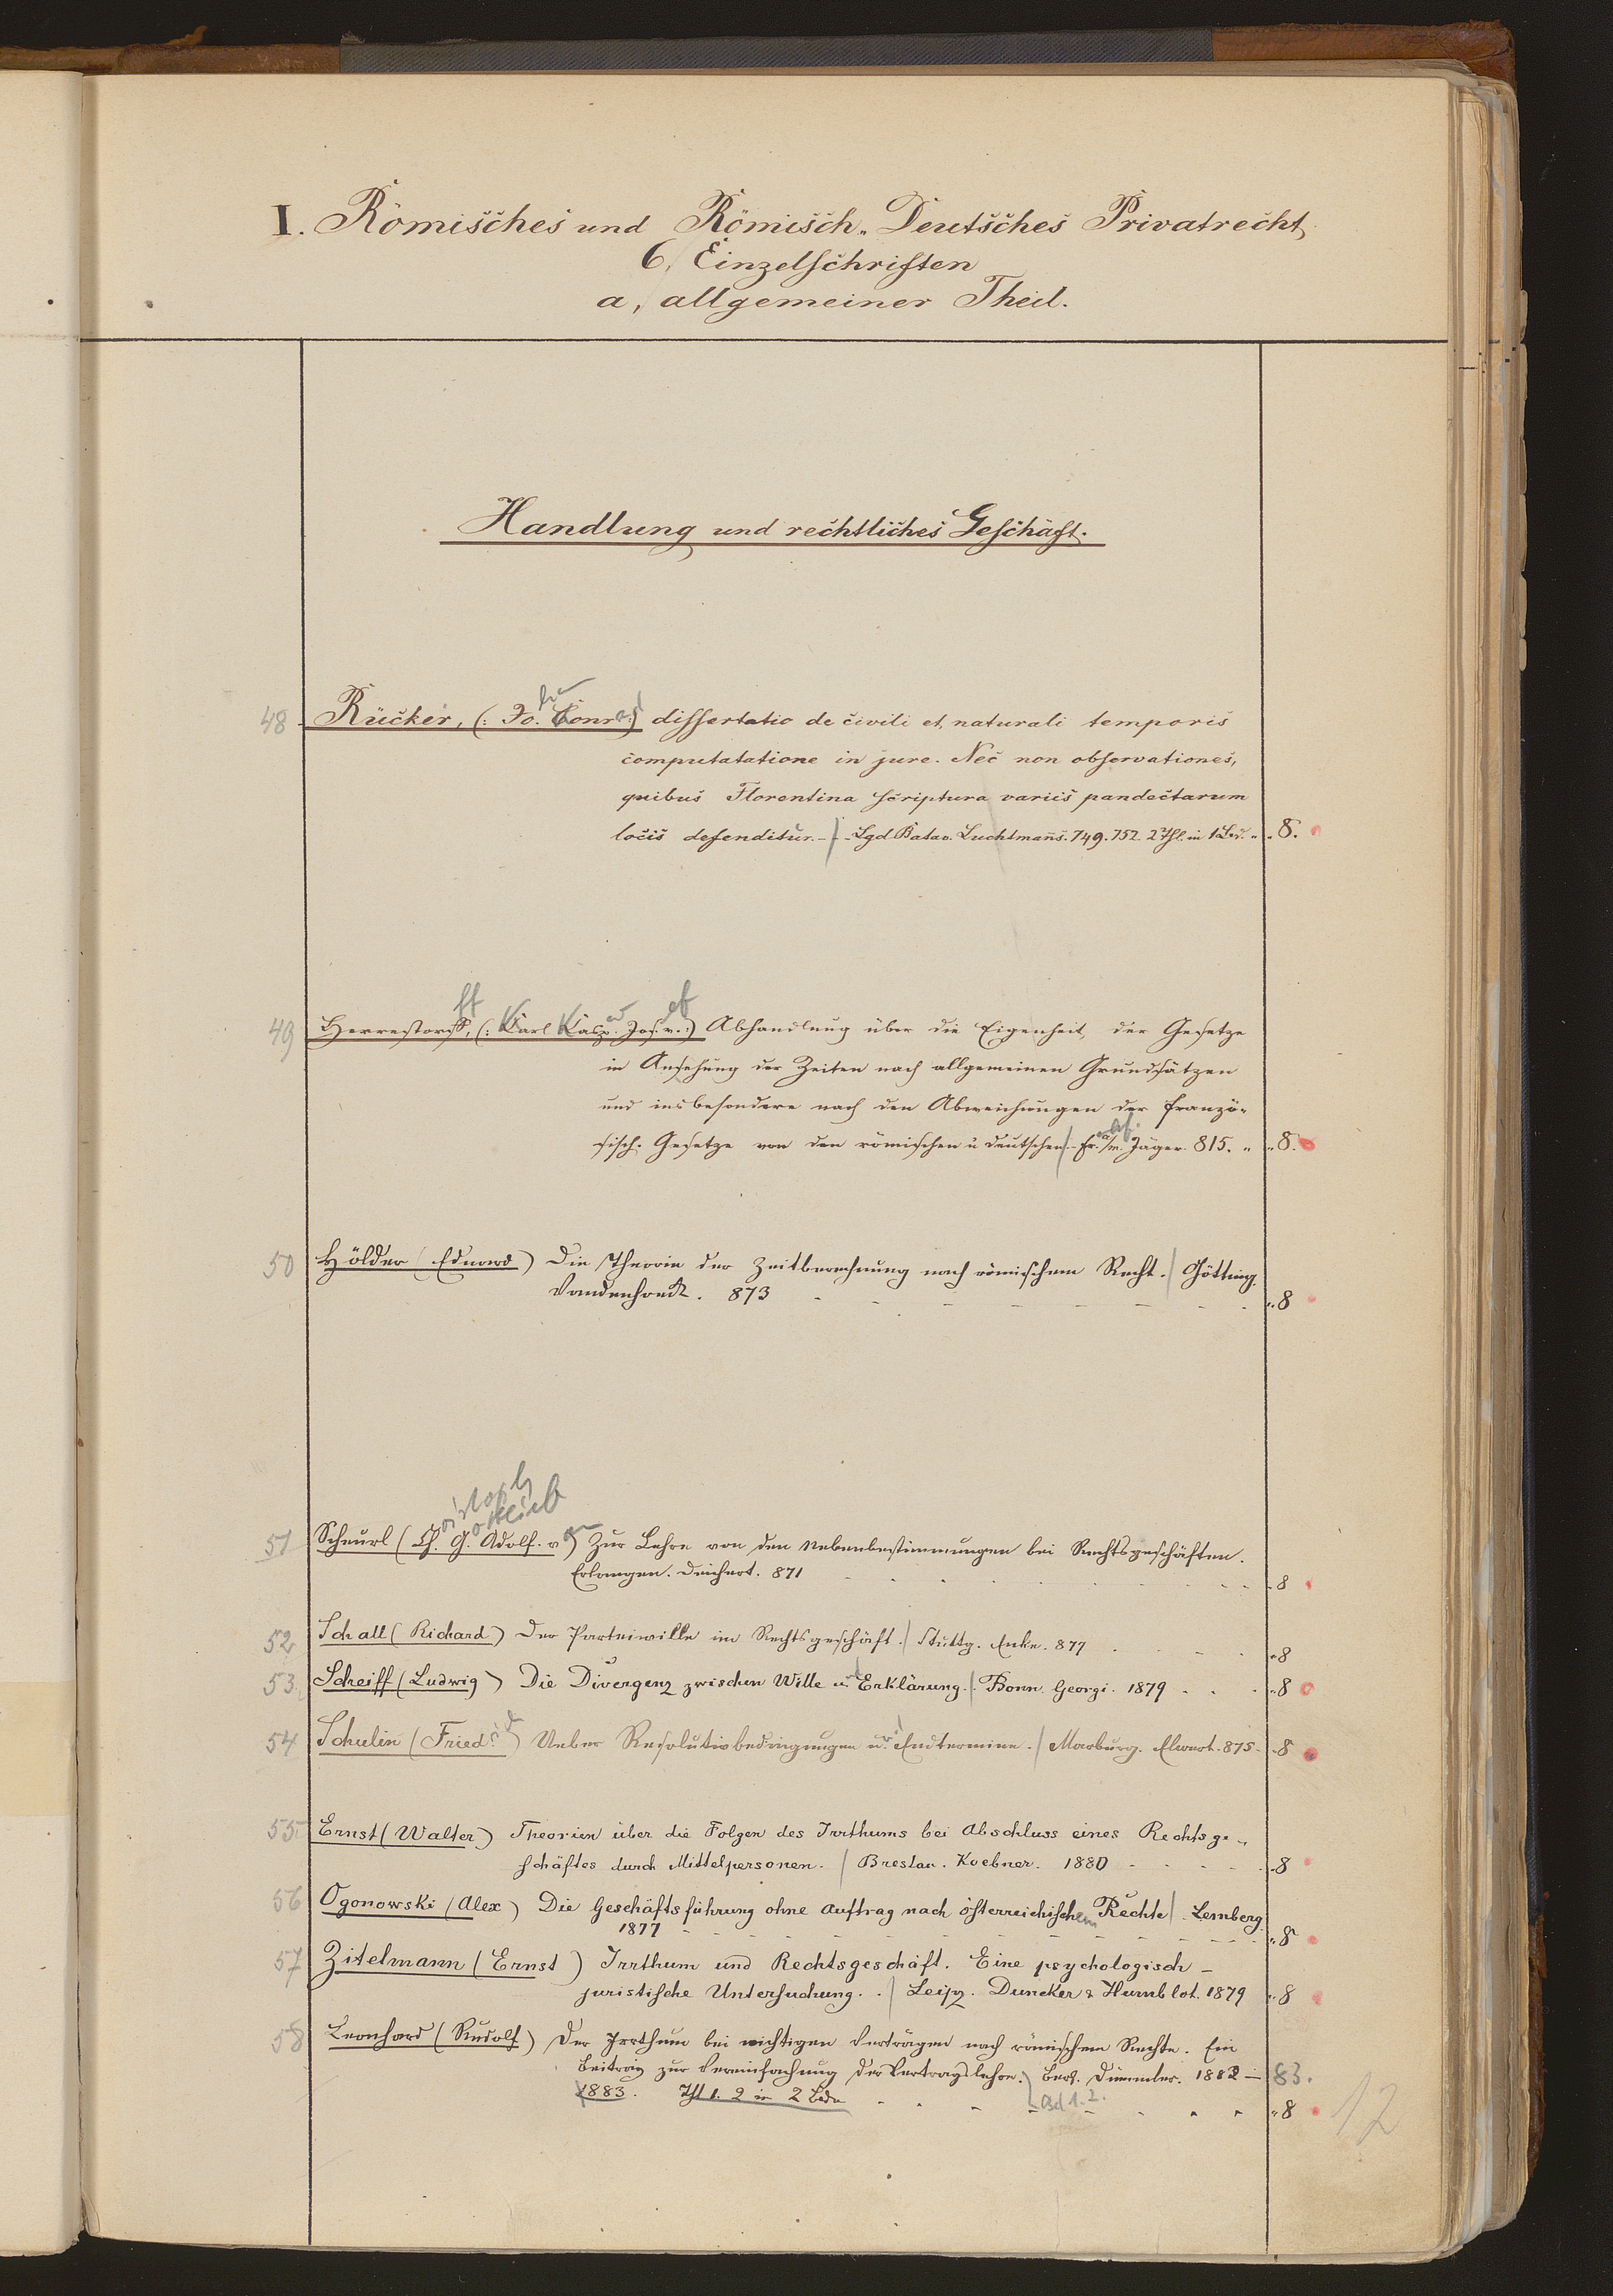 I. Römisches und Römisch-Deutsches Privatrecht,
6, Einzelschriften
a, allgemeiner Theil.
Handlung und rechtliches Geschäft.
48 Rücker, (: Jo. Conr.:) dissertatio de civili et naturali temporis
computatatione in jure. Nec non observationes,
quibus Florentina scriptura variis pandectarum
locis defenditur. - / - Lgd. Batav. Luchtmans. 749. 752. 2 Thl. in 1 Bd. " " 8.
49 Herrestorff, (: Karl Kasp. Jos. v. :) Abhandlung über die Eigenheit, der Gesetze
in Ansehung der Zeiten nach allgemeinen Grundsätzen
und insbesondere nach den Abweichungen der franzö-
sisch. Gesetze von den römischen u deutschen / Fr. a/m. Jäger. 815. " " 8.
50 Hölder (Eduard) Die Theorie der Zeitberechnung nach römischem Recht. / Götting.
Vandenhoeck. 873 - - - - - - - - " 8
51 Scheurl (Ch. G. Adolf. v.) Zur Lehre von den Nebenbestimmungen bei Rechtsgeschäften.
Erlangen. Deichert. 871 - - - - - - - 8
52 Schall (Richard) Der Parteiwille im Rechtsgeschäft. / Stuttg. Enke. 877 . - - " 8
53. Scheiff (Ludwig) Die Divergenz zwischen Wille u. Erklärung. / Bonn. Georgi. 1879 - . . " 8
54 Schulin (Fried.) Ueber Resolutivbedingungen u. Endtermine. / Marburg. Elwert. 875 - - 8
55 Ernst (Walter) Theorien über die Folgen des Irrthums bei Abschluss eines Rechtsge-
schäftes durch Mittelpersonen. / Breslau. Koebner. 1880 - - - - - 8
56 Ogonowski (Alex) Die Geschäftsführung ohne Auftrag nach österreichischem Rechte / Lemberg.
1877 - - - - - - - - - - " 8
57 Zitelmann (Ernst) Irrthum und Rechtsgeschäft. Eine psychologisch-
juristische Untersuchung. . / Leipz. Duncker & Humblot. 1879 " 8
58 Leonhard (Rudolf) Der Irrthum bei nichtigen Verträgen nach römischem Rechte. Ein
Beitrag zur Vereinfachung der Vertragslehre. / Berl. Dümmler. 1882 - 83.
1883. Thl 1. 2 in 2 Bdn - - - Bd 1. 2. - - - " 8
12